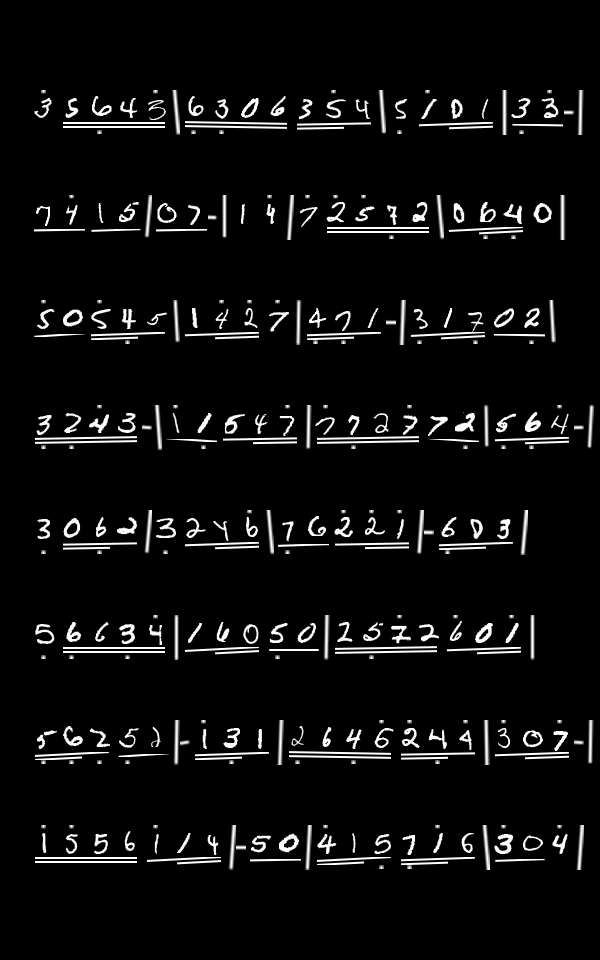 3 5 6 4 3 | 6 3 0 6 3 5 4 | 5 1 0 1 | 3 3 - |
7 4 1 5 | 0 7 - | 1 4 | 7 2 5 7 2 | 0 6 4 0 |
5 0 5 4 5 | 1 4 2 7 | 4 7 1 - | 3 1 7 0 2 |
3 2 4 3 - | 1 1 5 4 7 | 7 7 2 7 7 2 | 5 6 4 - |
3 0 6 2 | 3 2 4 6 | 7 6 2 2 1 | - 6 0 3 |
5 6 6 3 4 | 1 6 0 5 0 | 2 5 7 2 6 0 1 |
5 6 2 5 2 | - 1 3 1 | 2 6 4 6 2 4 4 | 3 0 7 - |
1 5 5 6 1 1 4 | - 5 0 | 4 1 5 7 1 6 | 3 0 4 |